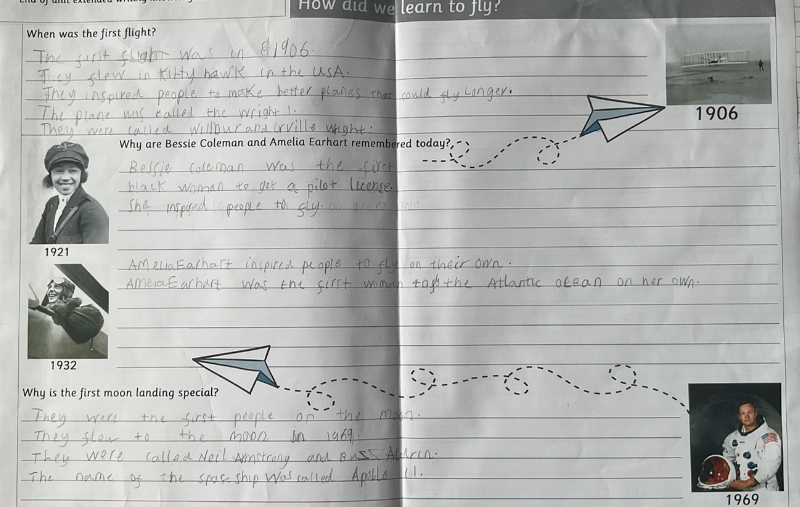 How did we learn to fly?
When was the first flight?
The first flight was in 1906.
They flew in Kitty hawk in the USA.
They inspired people to make better planes that could fly longer.
The plane was called the Wright 1.
They were called Wilbur and Orville Wright.
1906
Why are Bessie Coleman and Amelia Earhart remembered today?
Bessie Coleman was the first
black woman to get a pilot license
She inspired people to fly
1921
Amelia Earhart inspired people to fly on their own.
Ameia Earhart was the first woman the Atlantic ocean on her own.
1932
Why is the first moon landing special?
They were the first people on the moon.
They flew to the moon in 1969.
They were called Neil Armstrong and Aldrin.
The name of the spaceship was called Apollo 11.
1969